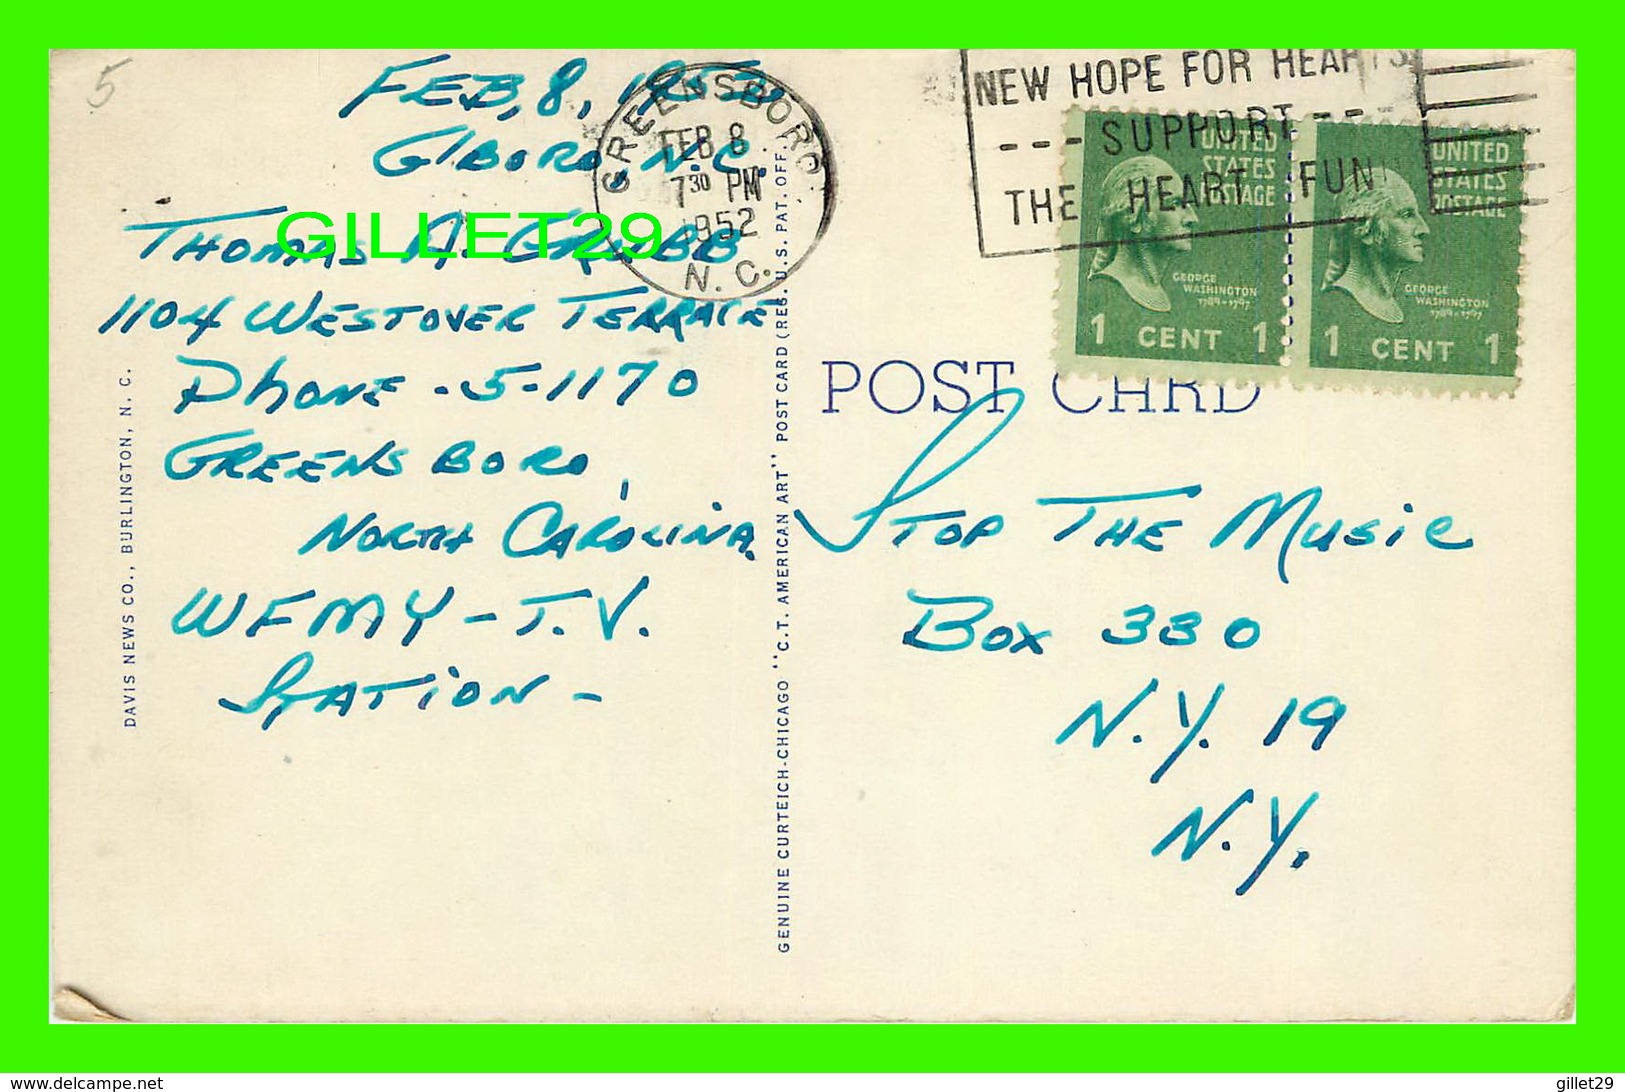 5
FEB, 8, 1952
G'BORO, N.C.
THOMAS A. GRUBB
1104 WESTOVER TERRACE
PHONE - 5-1170
GREENSBORO,
NORTH CAROLINA.
WFMY - T.V.
STATION -
GILLET29
GREENSBORO
FEB 8
7 30 PM
1952
N. C.
NEW HOPE FOR HEARTS
--- SUPPORT ---
THE HEART FUND
UNITED
STATES
POSTAGE
GEORGE
WASHINGTON
1789-1797
1 CENT 1
UNITED
STATES
POSTAGE
GEORGE
WASHINGTON
1789-1797
1 CENT 1
POST CARD
STOP THE MUSIC
BOX 330
N.Y. 19
N.Y.
DAVIS NEWS CO., BURLINGTON, N. C.
GENUINE CURTEICH-CHICAGO "C.T. AMERICAN ART" POST CARD (REG. U.S. PAT. OFF.)
http://www.delcampe.net
gillet29